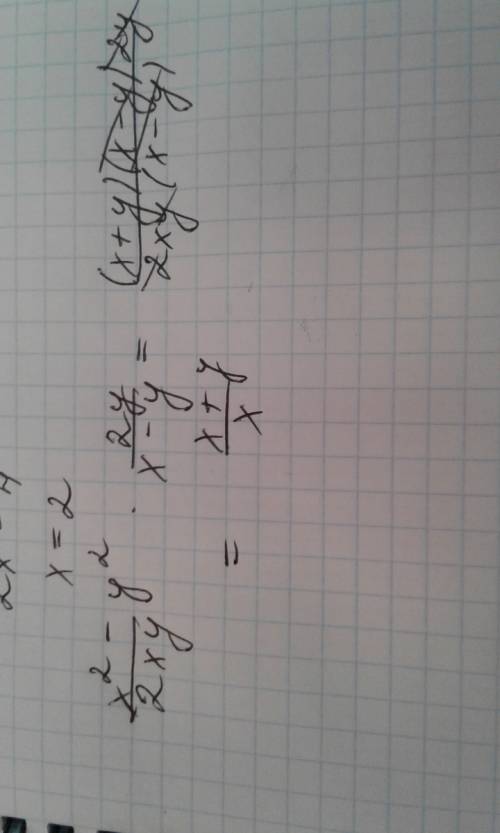 x = 2
x² - y² / 2xy · 2y / x - y = (x + y)(x - y)2y / 2xy(x - y)
= x + y / x